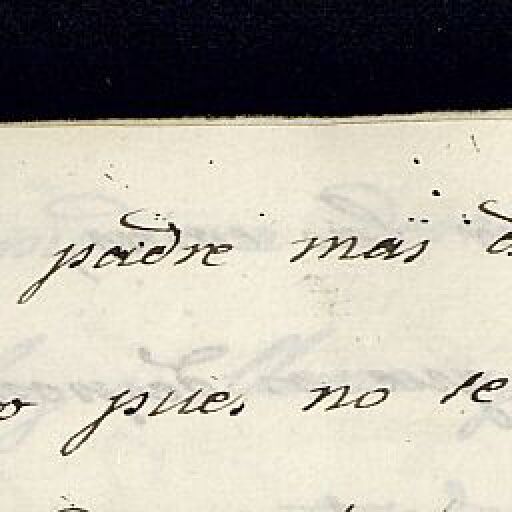 padre mas
pues no se